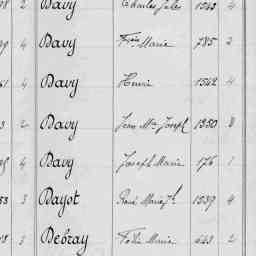 8 2 Davy Charles Jules 1543 4
9 4 Davy Fçois Marie 785 2
61 4 Davy Henri 1542 4
3 2 Davy Jean Mie Joseph 1330 8
4 Davy Joseph Marie 176 1
53 3 Dayot René Marie Jh 1539 4
8 3 Debray Félix Marie 643 2